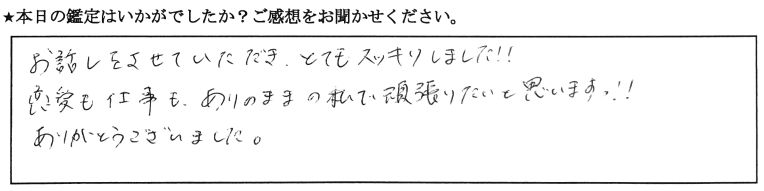 ★本日の鑑定はいかがでしたか？ご感想をお聞かせください。
お話しをさせていただき、とてもスッキリしました!!
恋愛も仕事も、ありのままの私で頑張りたいと思いますっ!!
ありがとうございました。